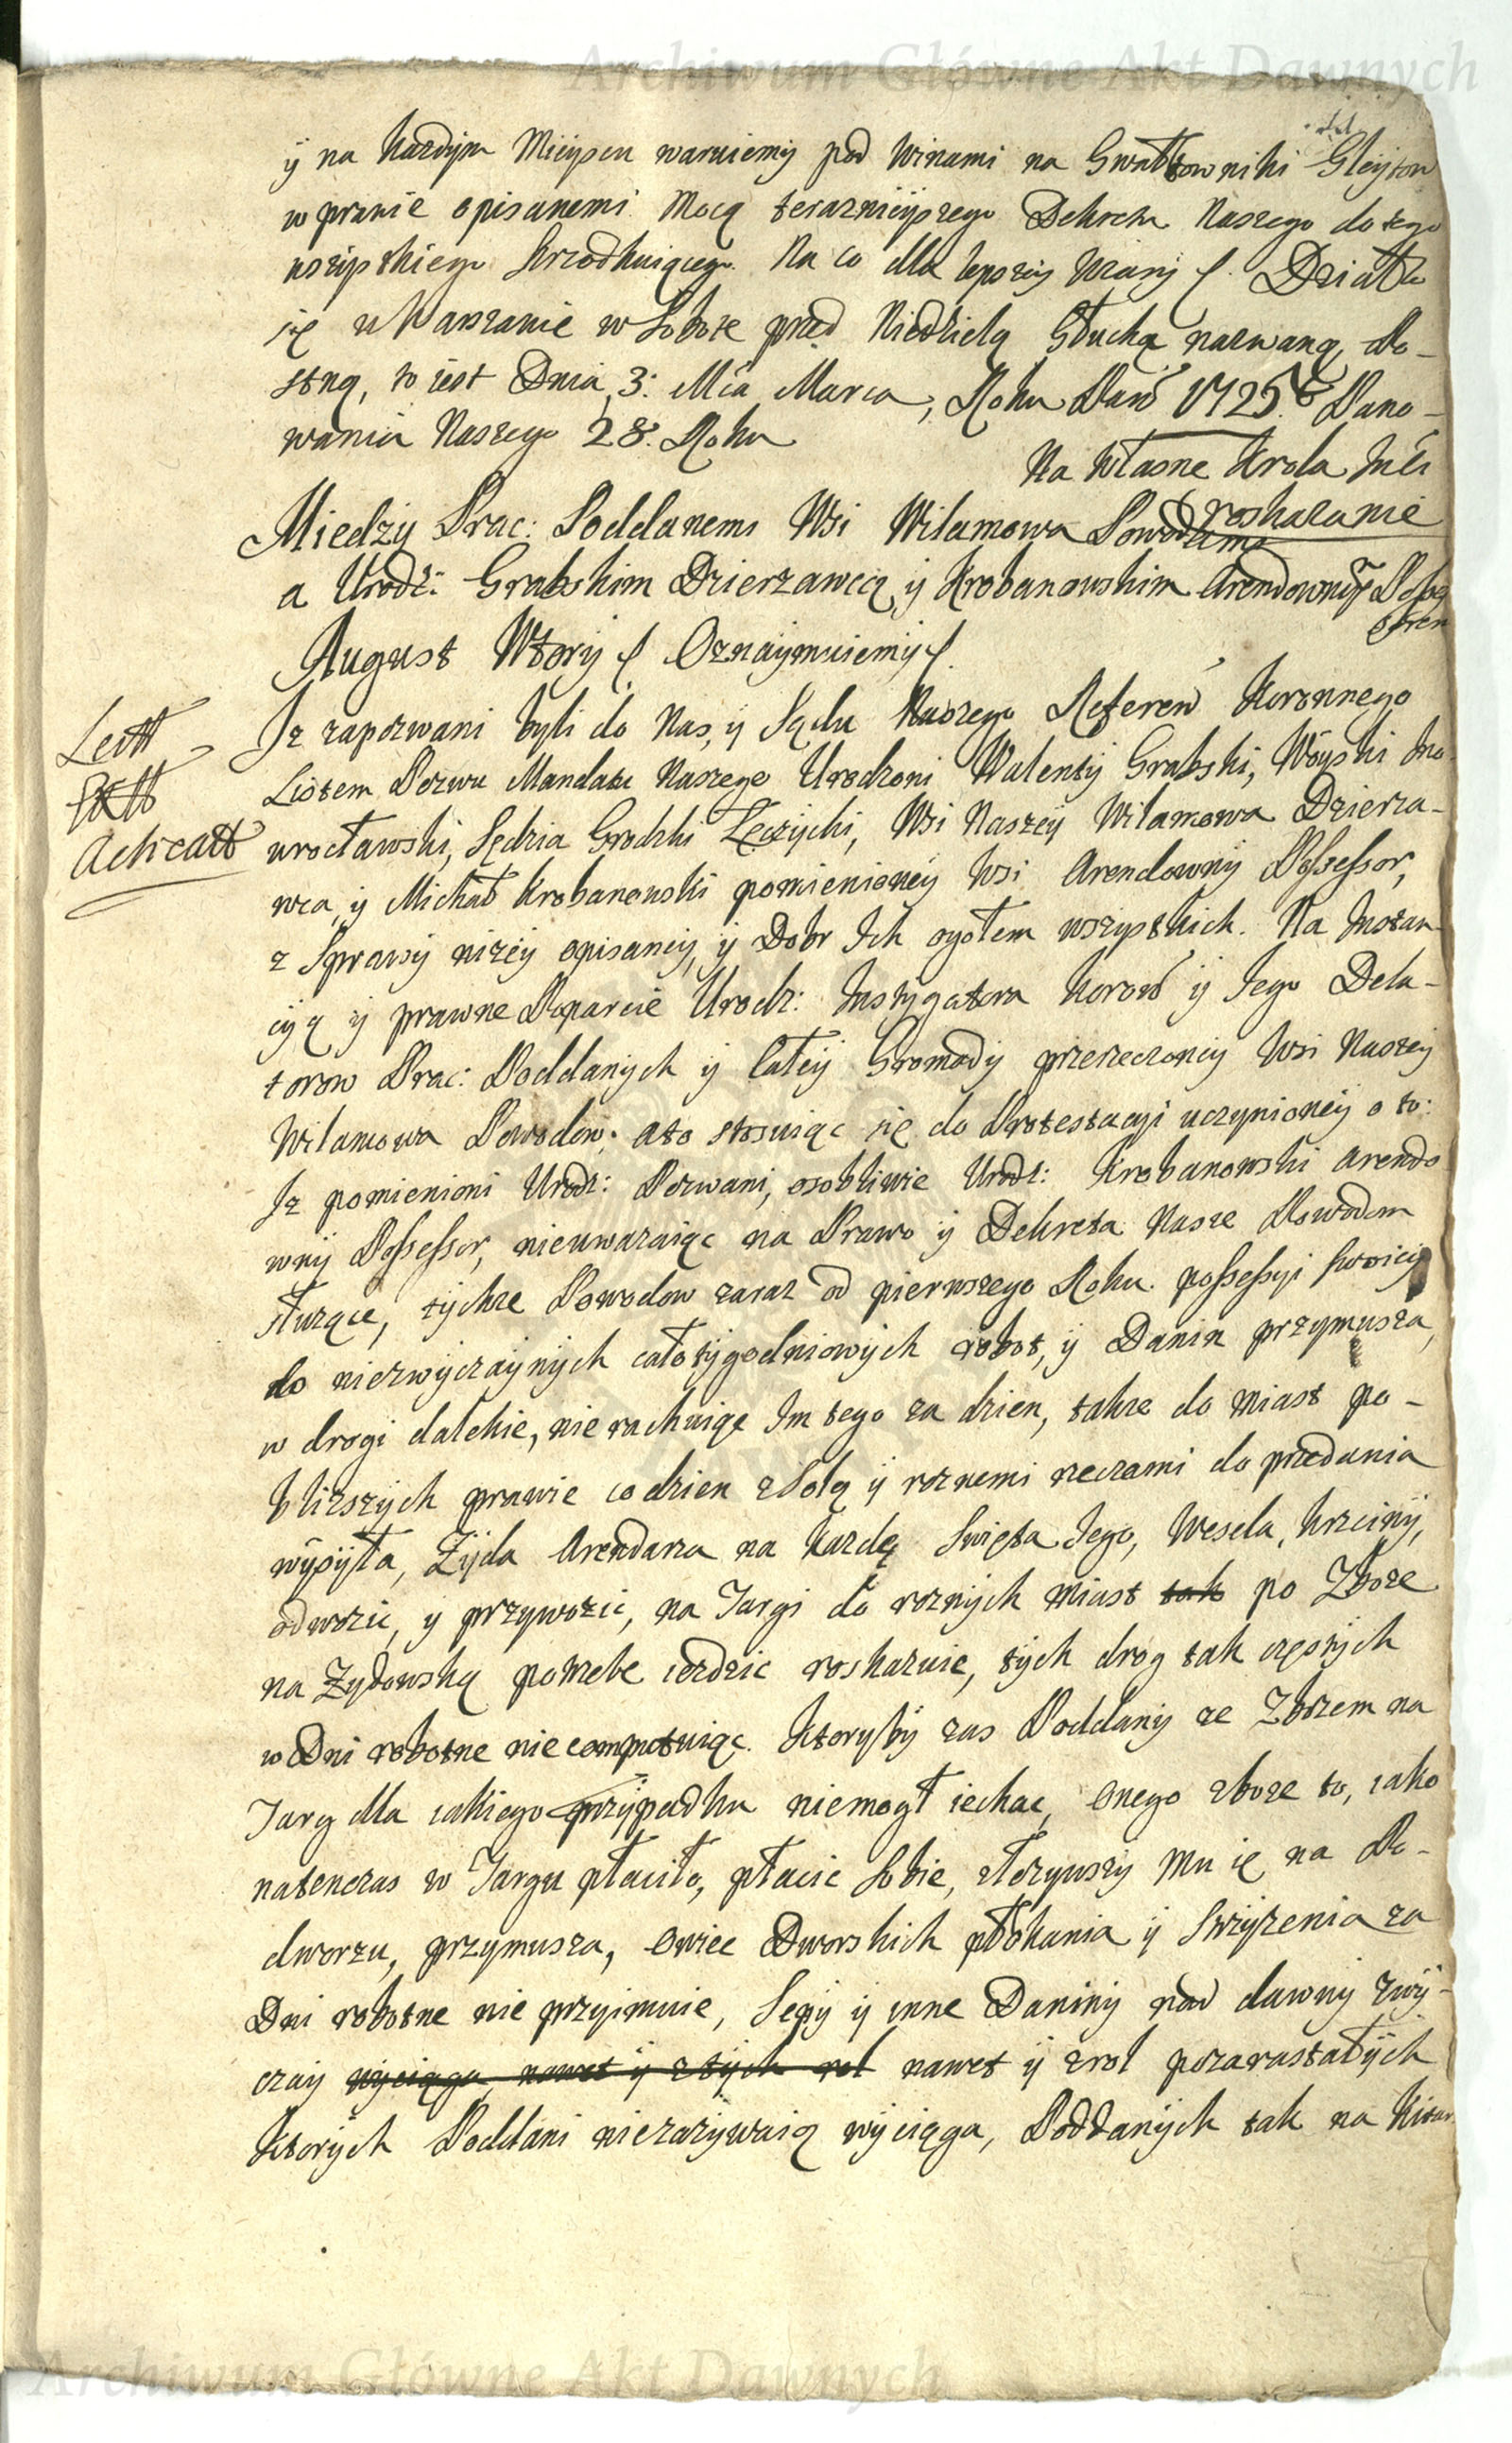 Archiwum Główne Akt Dawnych
y na kazdym Mieyscu waruiemy pod Winami na Gwałtowniki Gleytow
w prawie opisanemi Mocą teraznieyszego Dekretu Naszego do tego
wszystkiego Na co dla lepszey Wiary /. Działo
się w Warszawie w Sobotę przed Niedzielą Głuchą nazwaną Po-
stną, to iest Dnia 3: Mca Marca, Roku Pań 1725. Pano-
wania Naszego 28. Roku
Na Własne Krola JMci
roskazanie
Miedzy Prac: Poddanemi Wsi Wilamowa Powodami
a Urodz: Grabskim Dzierzawcą y Krobanowskim Arendownym
August Wtory /. Oznaymuiemy /.
Lect
Acticatt
Iz zapozwani byli do Nas, y Sądu Naszego Referen Koronnego
Listem Pozwu Mandatu Naszego Urodzeni Walenty Grabski, Woyski Ino-
wrocławski, Sędzia Grodzki Łęczycki, Wsi Naszey Wilamowa Dzierza-
wca, y Michał Krobanowski pomienioney Wsi Arendowny Possessor,
z Sprawy nizey opisaney, y Dobr Ich ogołem wszystkich. Na Instan-
cyą y prawne Poparcie Urodz: Instygatora Koron y Iego Dela-
torow Prac: Poddanych y Całey Gromady przerzeczoney Wsi Naszey
Wilamowa Powodow: ato stosuiąc się do Protestacyi uczynioney o to:
Iz pomienioni Urodz: Pozwani, osobliwie Urodz: Krobanowski Arendo
wny Possessor, nieuwazaiąc na Prawo y Dekreta Nasze Powodom
słuzące, tychze Powodow zaraz od pierwszego Roku possessyi swoiey
do niezwyczaynych całotygodniowych robot, y Danin przymusza,
w drogi dalekie, nie rachuiąc Im tego za dzien, takze do Miast po-
blizszych prawie co dzien z Solą y roznemi rzeczami do przedania
wysyła, Zyda Arendarza na Kazdę Swięta Iego, Wesela, Krzciny,
odwozic, y przywozic, na Targi do roznych Miast tak po Zboze
na Zydowską potrzebe iezdzic roskazuie, tych drog tak częstych
w Dni robotne nie computuiąc. Ktoryby zas Poddany ze Zbozem na
Targ dla iakiego przypadku niemogł iechac, onego zboze to, iako
natenczas w Targu płaciło, płacic Sobie, złozywszy Mu ie na Po-
dworzu, przymusza, Owiec Dworskich płokania y Strzyzenia za
Dni robotne nie przyimuie, Sepy y inne Daniny nad dawny zwy-
czay wyciąga, nawet y z tych rol nawet y z rol pozarastałych
Ktorych Poddani niezazywaią wyciąga, Poddanych tak na
Archiwum Główne Akt Dawnych